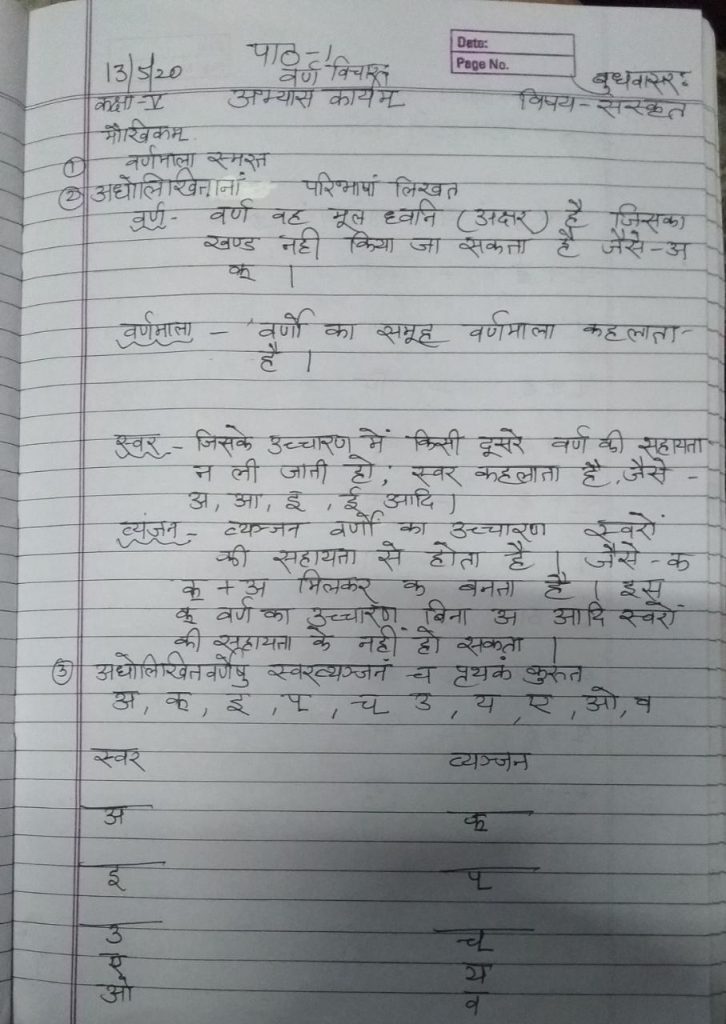 पाठ-1
Date:
Page No.
13/5/20 वर्ण विचार बुधवासरः
कक्षा-V अभ्यास कार्यम् विषय-संस्कृत
मौखिकम्
① वर्णमाला स्मरत
② अधोलिखितानां परिभाषां लिखत
वर्ण- वर्ण वह मूल ध्वनि (अक्षर) है जिसका
खण्ड नही किया जा सकता है जैसे-अ
क् |
वर्णमाला - वर्णों का समूह वर्णमाला कहलाता-
है |
स्वर - जिसके उच्चारण में किसी दूसरे वर्ण की सहायता
न ली जाती हो; स्वर कहलाता है, जैसे -
अ, आ, इ, ई आदि |
व्यंजन- व्यञ्जन वर्णों का उच्चारण स्वरों
की सहायता से होता है | जैसे-क
क् + अ मिलकर क बनता है | इस
क् वर्ण का उच्चारण बिना अ आदि स्वरों
की सहायता के नहीं हो सकता |
③ अधोलिखितवर्णेषु स्वरव्यञ्जनं च पृथकं कुरुत
अ, क्, इ, प्, च् उ, य, ए, ओ, व
स्वर व्यञ्जन
अ क्
इ प्
उ च्
ए य
ओ व